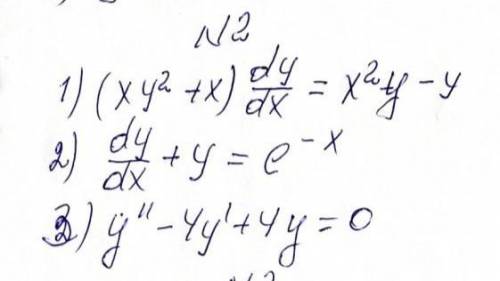 N2
1) (xy² + x) dy/dx = x²y - y
2) dy/dx + y = e^{-x}
3) y'' - 4y' + 4y = 0